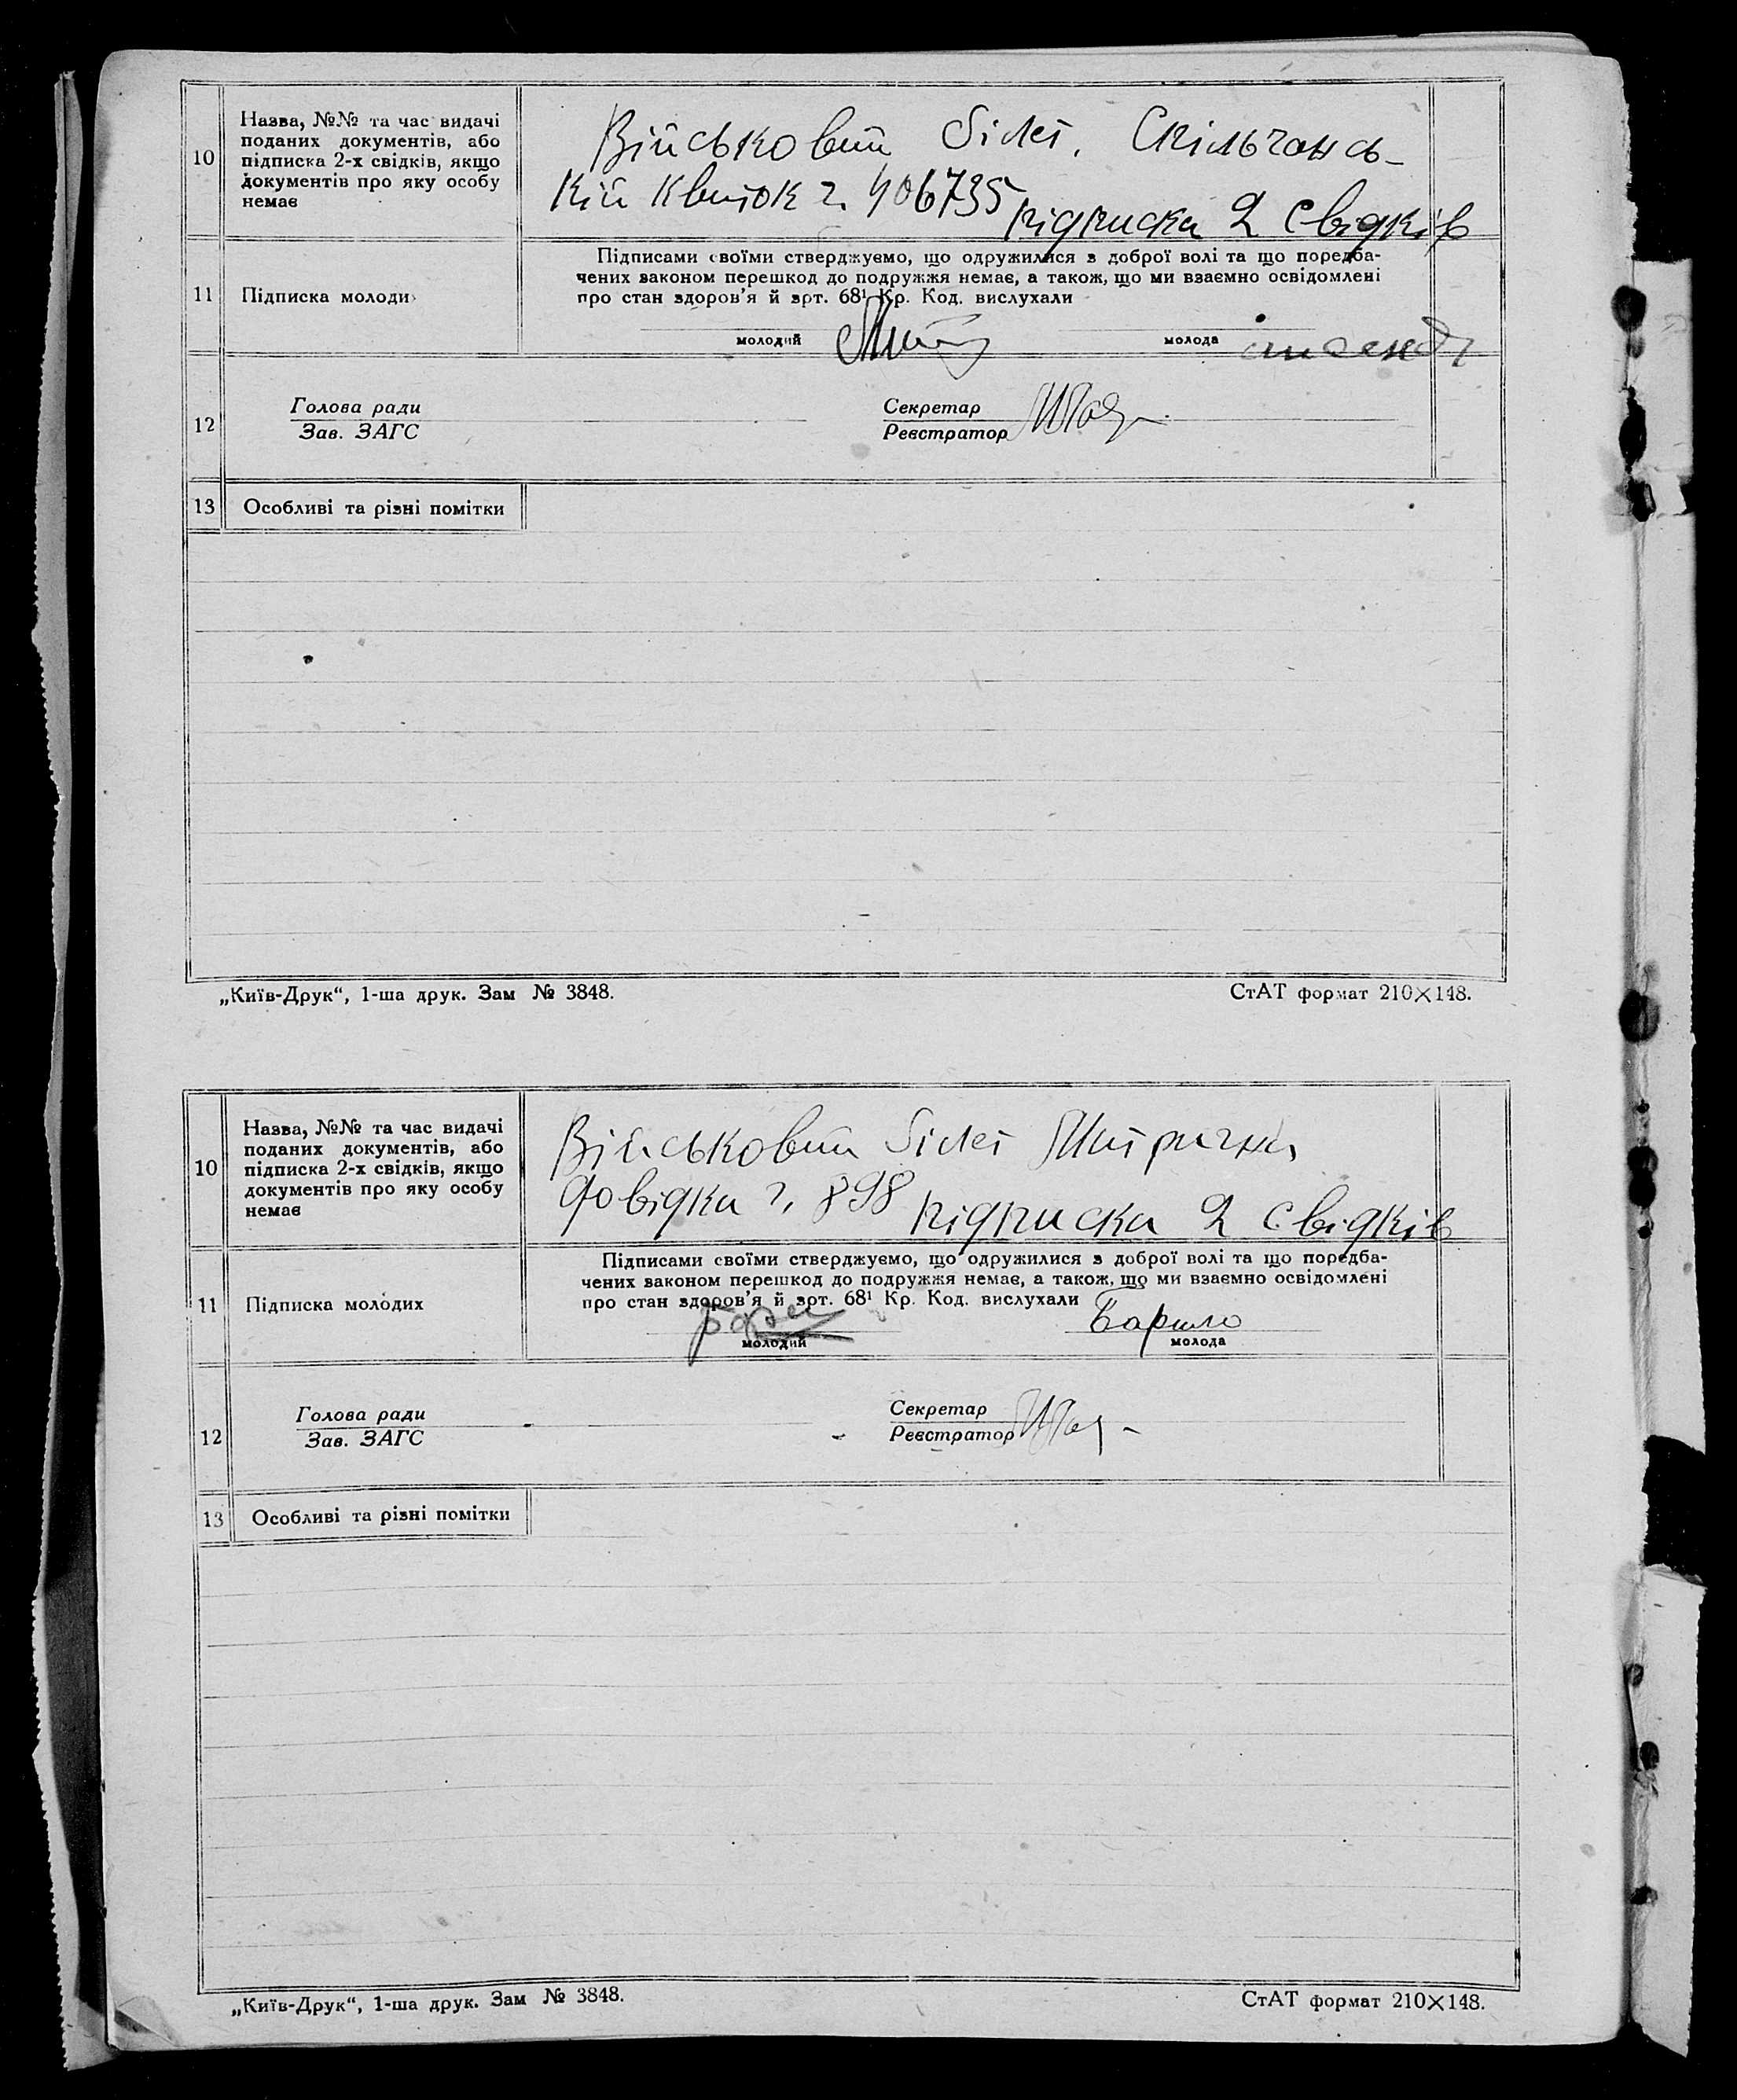 10
Назва, №№ та час видачі
поданих документів, або
підписка 2-х свідків, якщо
документів про яку особу
немає
Військовий білет, Спільчансь-
кій квиток г. 406735
підписка 2 свідків
11
Підписка молоди
Підписами своїми стверджуємо, що одружилися з доброї волі та що поредба-
чених законом перешкод до подружжя немає, а також, що ми взаємно освідомлені
про стан здоров'я й арт. 68¹ Кр. Код. вислухали
молодий
молода
12
Голова ради
Зав. ЗАГС
Секретар
Реєстратор
13
Особливі та різні помітки
„Київ-Друк“, 1-ша друк. Зам № 3848.
СтАТ формат 210×148.
10
Назва, №№ та час видачі
поданих документів, або
підписка 2-х свідків, якщо
документів про яку особу
немає
Військовий білет
довідка г. 898 підписка 2 свідків
11
Підписка молодих
Підписами своїми стверджуємо, що одружилися з доброї волі та що поредба-
чених законом перешкод до подружжя немає, а також, що ми взаємно освідомлені
про стан здоров'я й арт. 68¹ Кр. Код. вислухали
молодий
молода
12
Голова ради
Зав. ЗАГС
Секретар
Реєстратор
13
Особливі та різні помітки
„Київ-Друк“, 1-ша друк. Зам № 3848.
СтАТ формат 210×148.